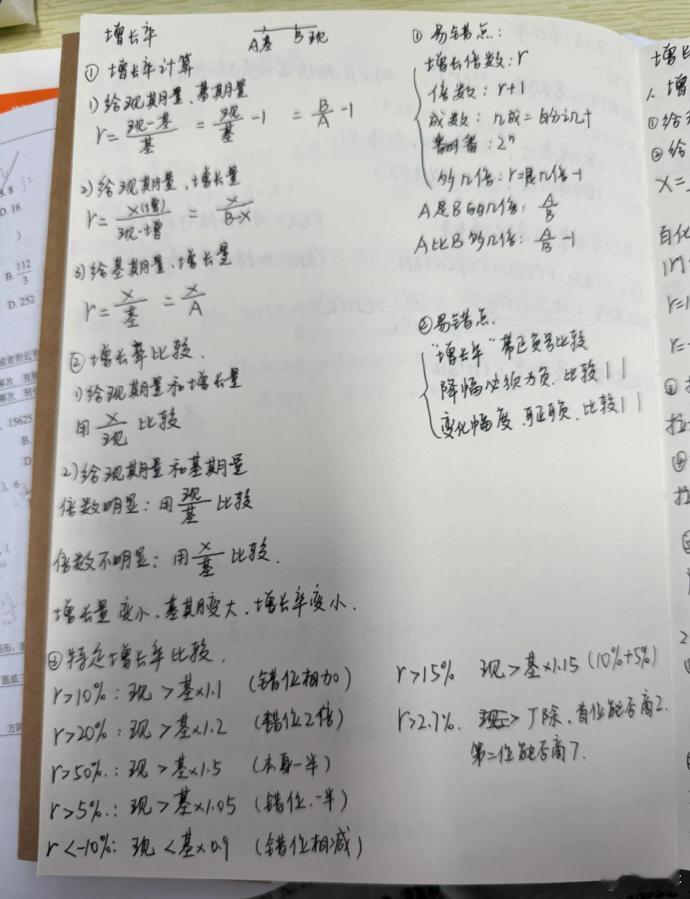 增长率
A基 B现
① 增长率计算
1)给现期量、基期量
r=现-基/基 =现/基 -1 =B/A -1
2)给现期量,增长量
r=X(增)/现-增 =X/B-X
3)给基期量,增长量
r=X/基 =X/A
②增长率比较.
1)给现期量和增长量
用X/现 比较
2)给现期量和基期量
倍数明显:用现/基 比较
倍数不明显:用X/基 比较.
增长量变小、基期变大、增长率变小.
③特定增长率比较.
r>10%:现>基×1.1 (错位相加)
r>20%:现>基×1.2 (错位2倍)
r>50%.:现>基×1.5 (本身一半)
r>5%.:现>基×1.05 (错位.一半)
r<-10%:现<基×0.9 (错位相减)
① 易错点:
增长倍数:r
倍数:r+1
成数:几成=百分之几十
翻番:2ⁿ
A是B的几倍:A/B
A比B多几倍:A/B -1
②易错点.
"增长率"带正负号比较
降幅必须为负.比较||
变化幅度.可正可负.比较||
r>15% 现>基×1.15 (10%+5%)
r>2.7%. 直除,首位能否商2.
第二位能否商7.
增长
①给
②给
X=
r=
r=
B.8
D.16
B.112/3
D.252
15625